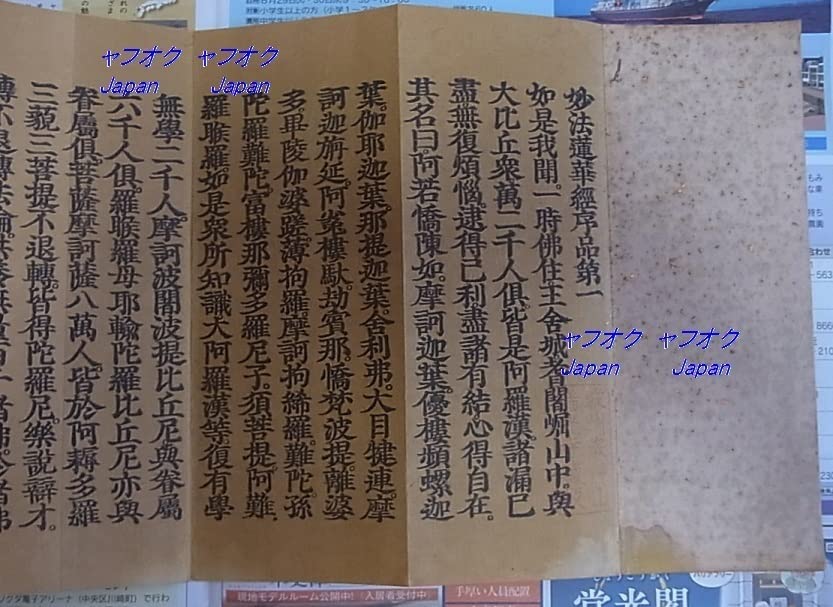 妙法蓮華經序品第一
如是我聞。一時佛住王舍城耆闍崛山中。與
大比丘衆萬二千人俱。皆是阿羅漢。諸漏已
盡無復煩惱。逮得己利盡諸有結心得自在。
其名曰。阿若憍陳如。摩訶迦葉。優樓頻螺迦
葉。伽耶迦葉。那提迦葉。舍利弗。大目犍連。摩
訶迦旃延。阿㝹樓馱。劫賓那。憍梵波提。離婆
多。畢陵伽婆蹉。薄拘羅。摩訶拘絺羅。難陀。孫
陀羅難陀。富樓那彌多羅尼子。須菩提。阿難。
羅睺羅。如是衆所知識大阿羅漢等。復有學
無學二千人。摩訶波闍波提比丘尼。與眷屬
六千人俱。羅睺羅母耶輸陀羅比丘尼。亦與
眷屬俱。菩薩摩訶薩八萬人。皆於阿耨多羅
三藐三菩提不退轉。皆得陀羅尼。樂說辯才。
ヤフオク ヤフオク
Japan Japan
ヤフオク ヤフオク
Japan Japan
現地モデルルーム公開中!
手厚い人員配置